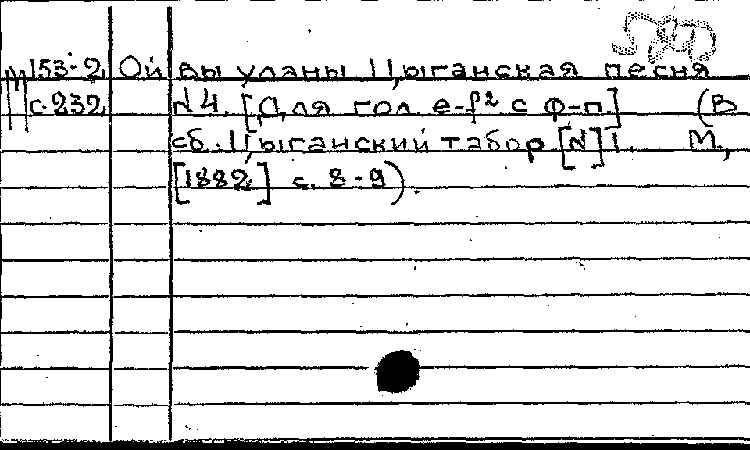 153-2 Ой вы уланы Цыганская песня
с.232 N 4. [Для гол e-f² с ф-п] (В
сб. Цыганский табор [N] I. М.,
[1882] с. 8-9)